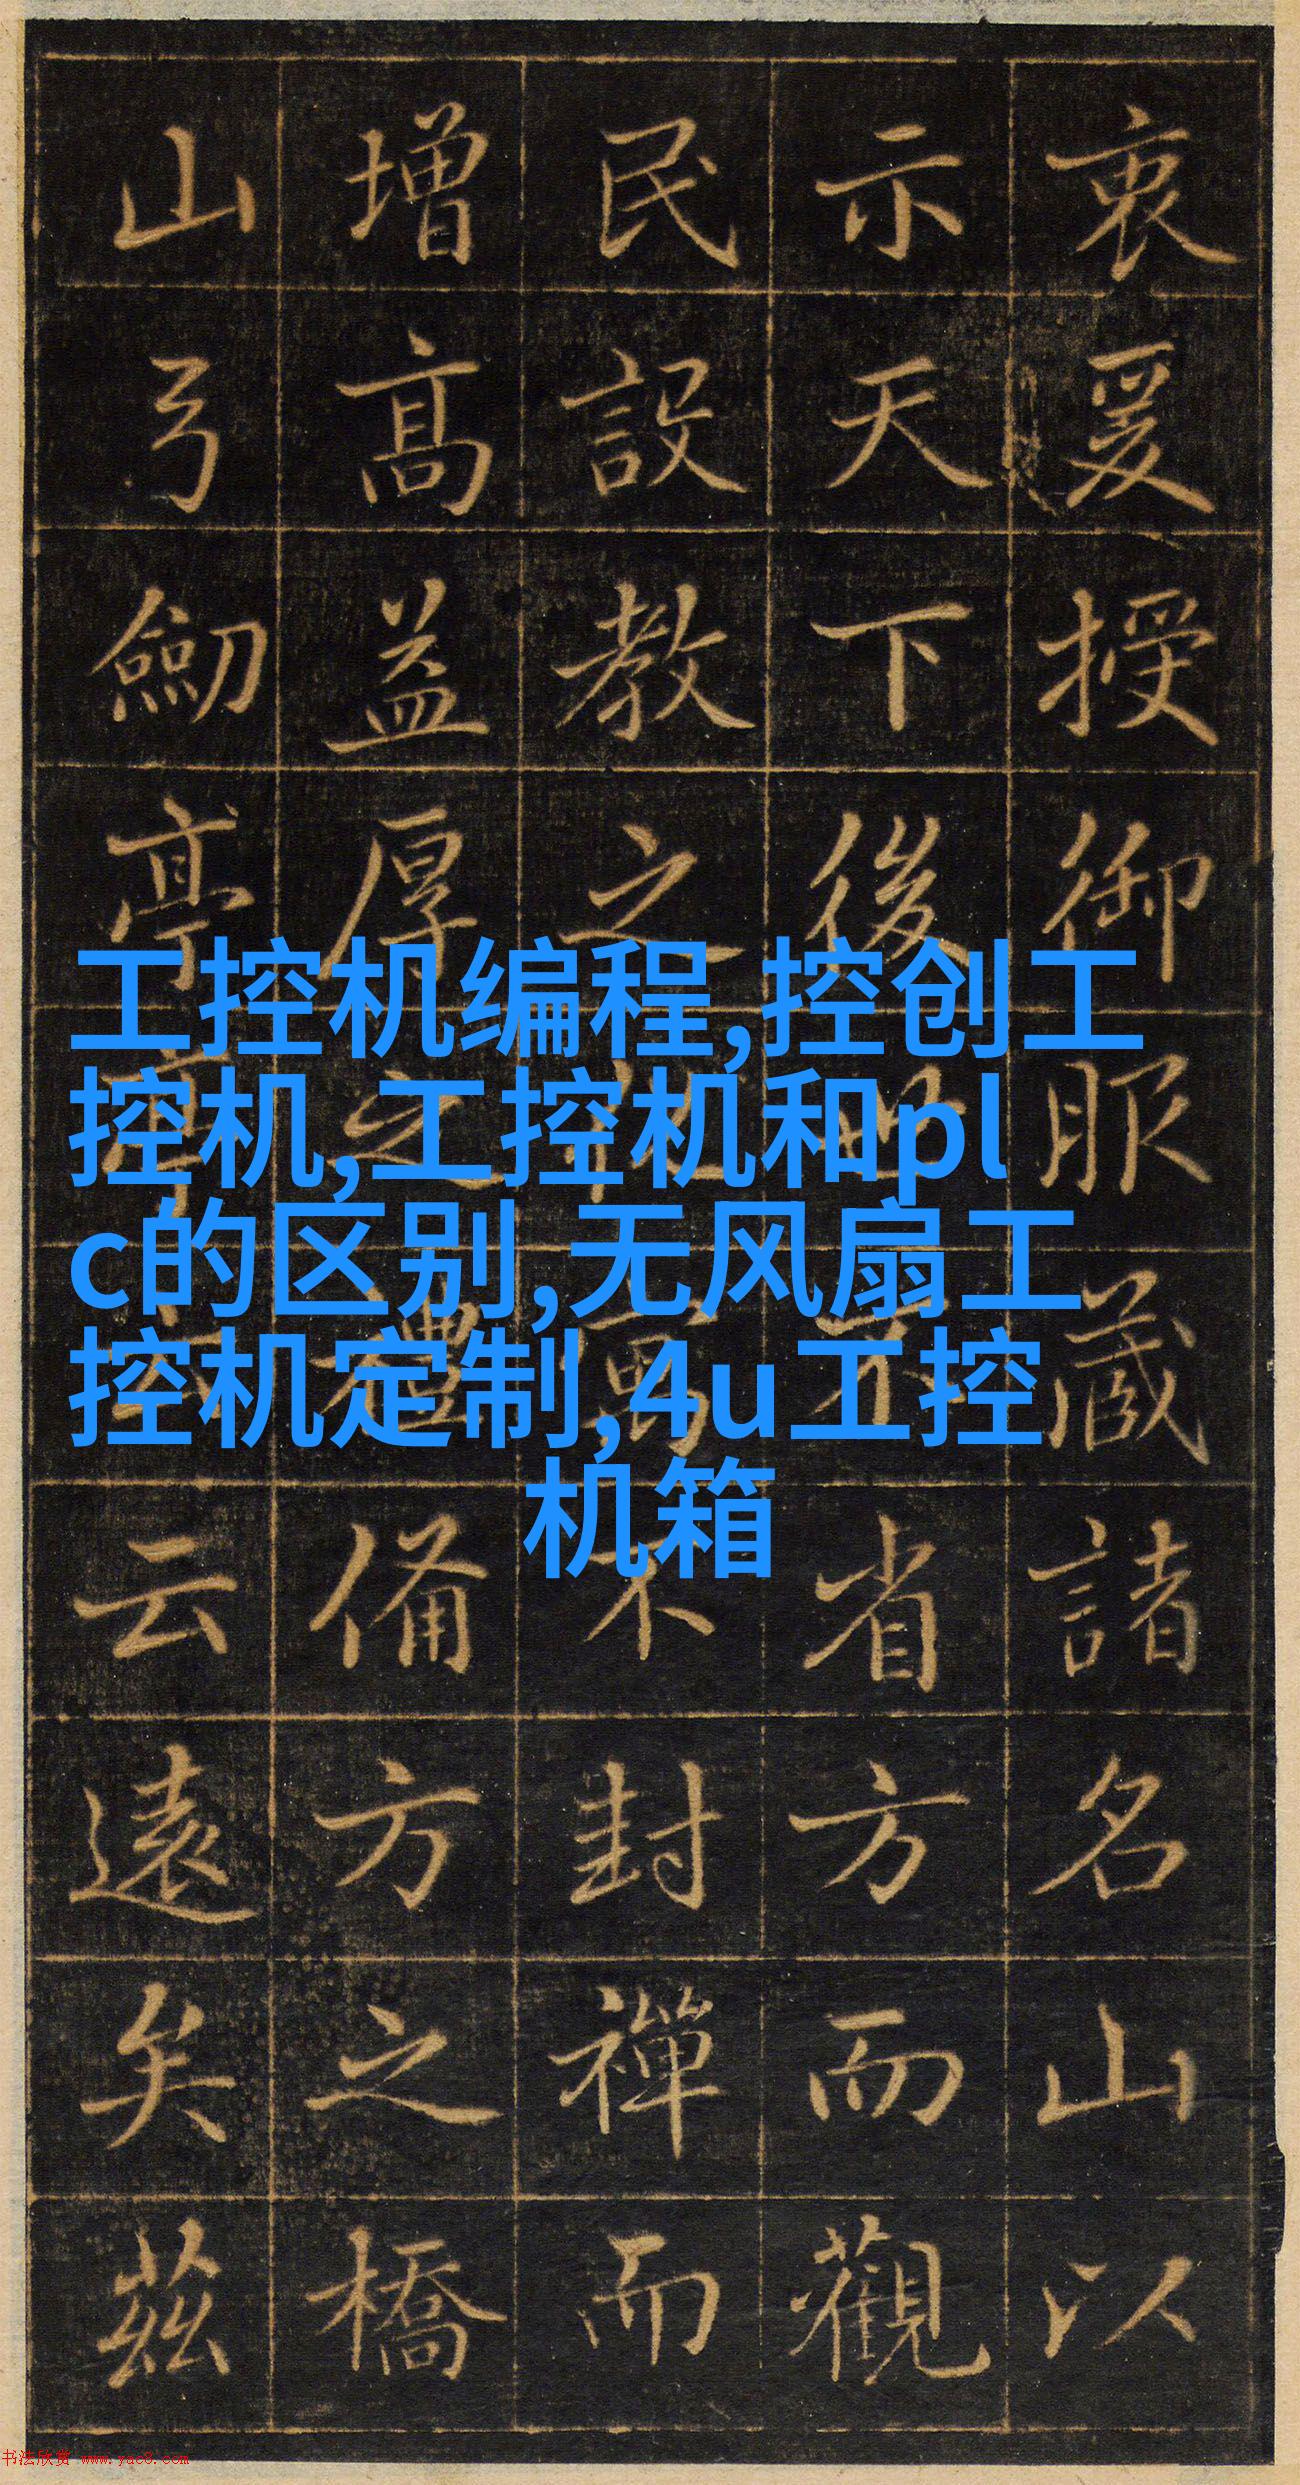 衷爰授御服藏諸名山以
示天下後世不省方而觀
民設教之不封禪而
增高益厚之禮備方之橋
山弓劒亭云遠矣茲
工控机编程,控创工
控机,工控机和pl
c的区别,无风扇工
控机定制,4u工控
机箱
书法欣赏 www.yac8.com